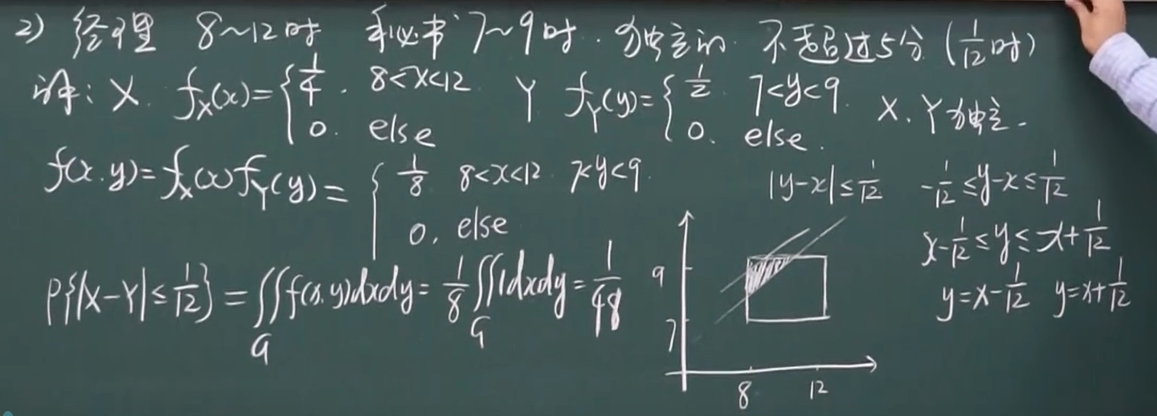 2) 经理 8~12时 秘书 7~9时. 独立的 不超过5分 (1/12时)
解: X f_X(x)={1/4, 8<x<12 0. else Y f_Y(y)={1/2 7<y<9. 0. else. X. Y独立.
f(x.y)=f_X(x)f_Y(y)={1/8 8<x<12 7<y<9. 0, else
|y-x|≤1/12 -1/12≤y-x≤1/12
x-1/12≤y≤x+1/12
y=x-1/12 y=x+1/12
P{|X-Y|≤1/12}=∬_G f(x,y)dxdy=1/8∬_G 1dxdy=1/48
9
7
8 12